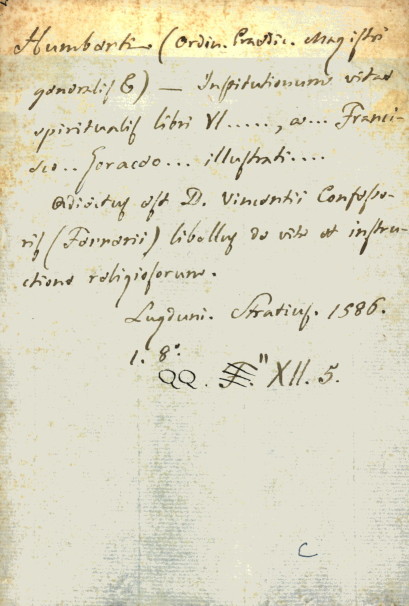 Humberti (Ordin. Praedic. Magistri
generalis 5) — Institutionum vitae
spiritualis libri VI....., a... Franci-
sco.. Geraeo... illustrati....
Adiectus est D. Vincentii Confesso-
ris (Ferrerii) libellus de vita et instru-
ctione religiosorum.
Lugduni. Stratius. 1586.
1. 8°.
QQ. XII. 5.
C